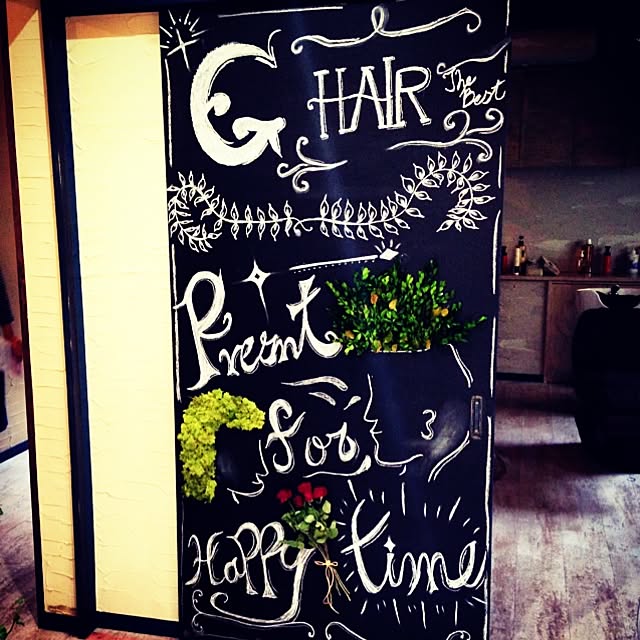 G HAIR The Best
Present
for
Happy time